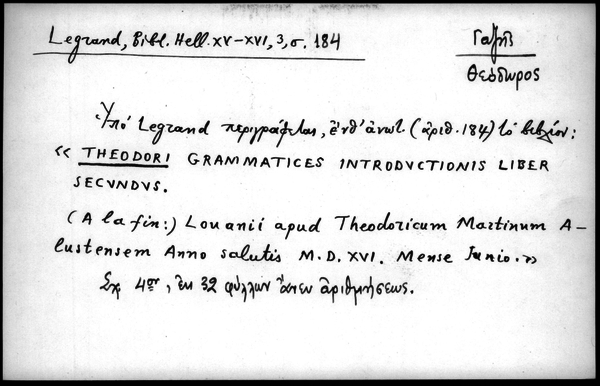 Legrand, Bibl. Hell. XV-XVI, 3, σ. 184
Γαζῆς
Θεόδωρος
Ὑπό Legrand περιγράφεται, ἔνθ' ἀνωτ. (ἀριθ. 184) τό βιβλίον:
« THEODORI GRAMMATICES INTRODVCTIONIS LIBER
SECVNDVS.
(A la fin:) Lovanii apud Theodoricum Martinum A-
lustensem Anno salutis M.D.XVI. Mense Junio.»
Σχ. 4ον, ἐκ 32 φύλλων ἄνευ ἀριθμήσεως.